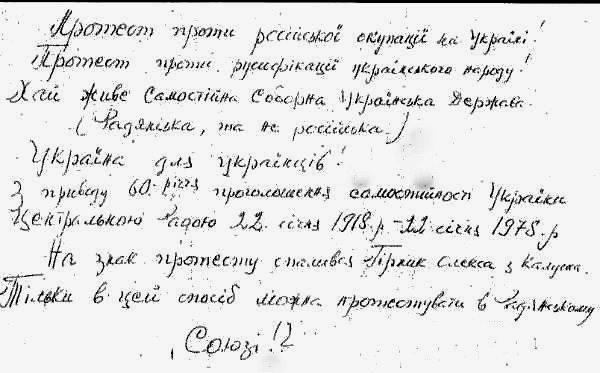 Протест проти російської окупації на Україні!
Протест проти русифікації українського народу!
Хай живе Самостійна Соборна Українська Держава.
(Радянська, та не російська.)
Україна для українців!
З приводу 60-річчя проголошення самостійності України
Центральною Радою 22 січня 1918 р. - 22 січня 1978 р.
На знак протесту спалився Гірник Олекса з Калуша.
Тільки в цей спосіб можна протестувати в Радянському
Союзі!?